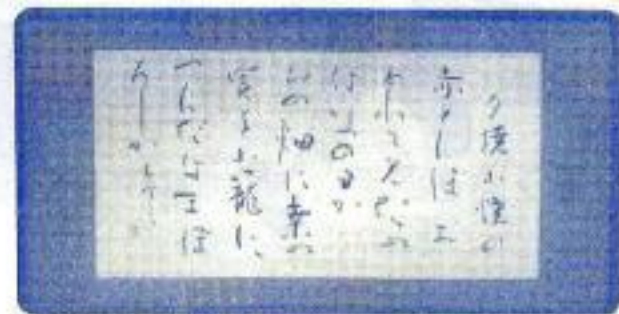 夕焼小焼の
赤とんぼ
われて見たの
はいつの日か
山の畑に桑の
実を小籠に、
つんだはまぼ
ろしか